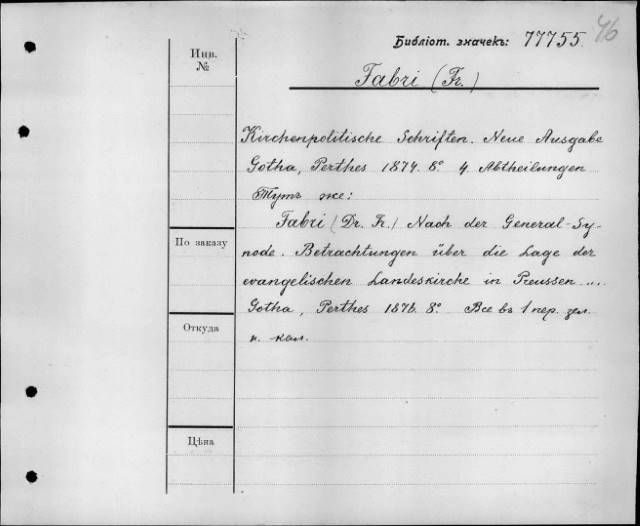 46
Библіот. значекъ: 77755.
Инв.
№
Fabri (Fr.)
Kirchenpolitische Schriften. Neue Ausgabe
Gotha, Perthes 1874. 8° 4 Abtheilungen
Тутъ же:
Fabri (Dr. Fr.) Nach der General-Sy-
По заказу
node. Betrachtungen über die Lage der
evangelischen Landeskirche in Preussen....
Gotha, Perthes 1876. 8°. Все въ 1 пер. зел.
Откуда
н. кол.
Цѣна